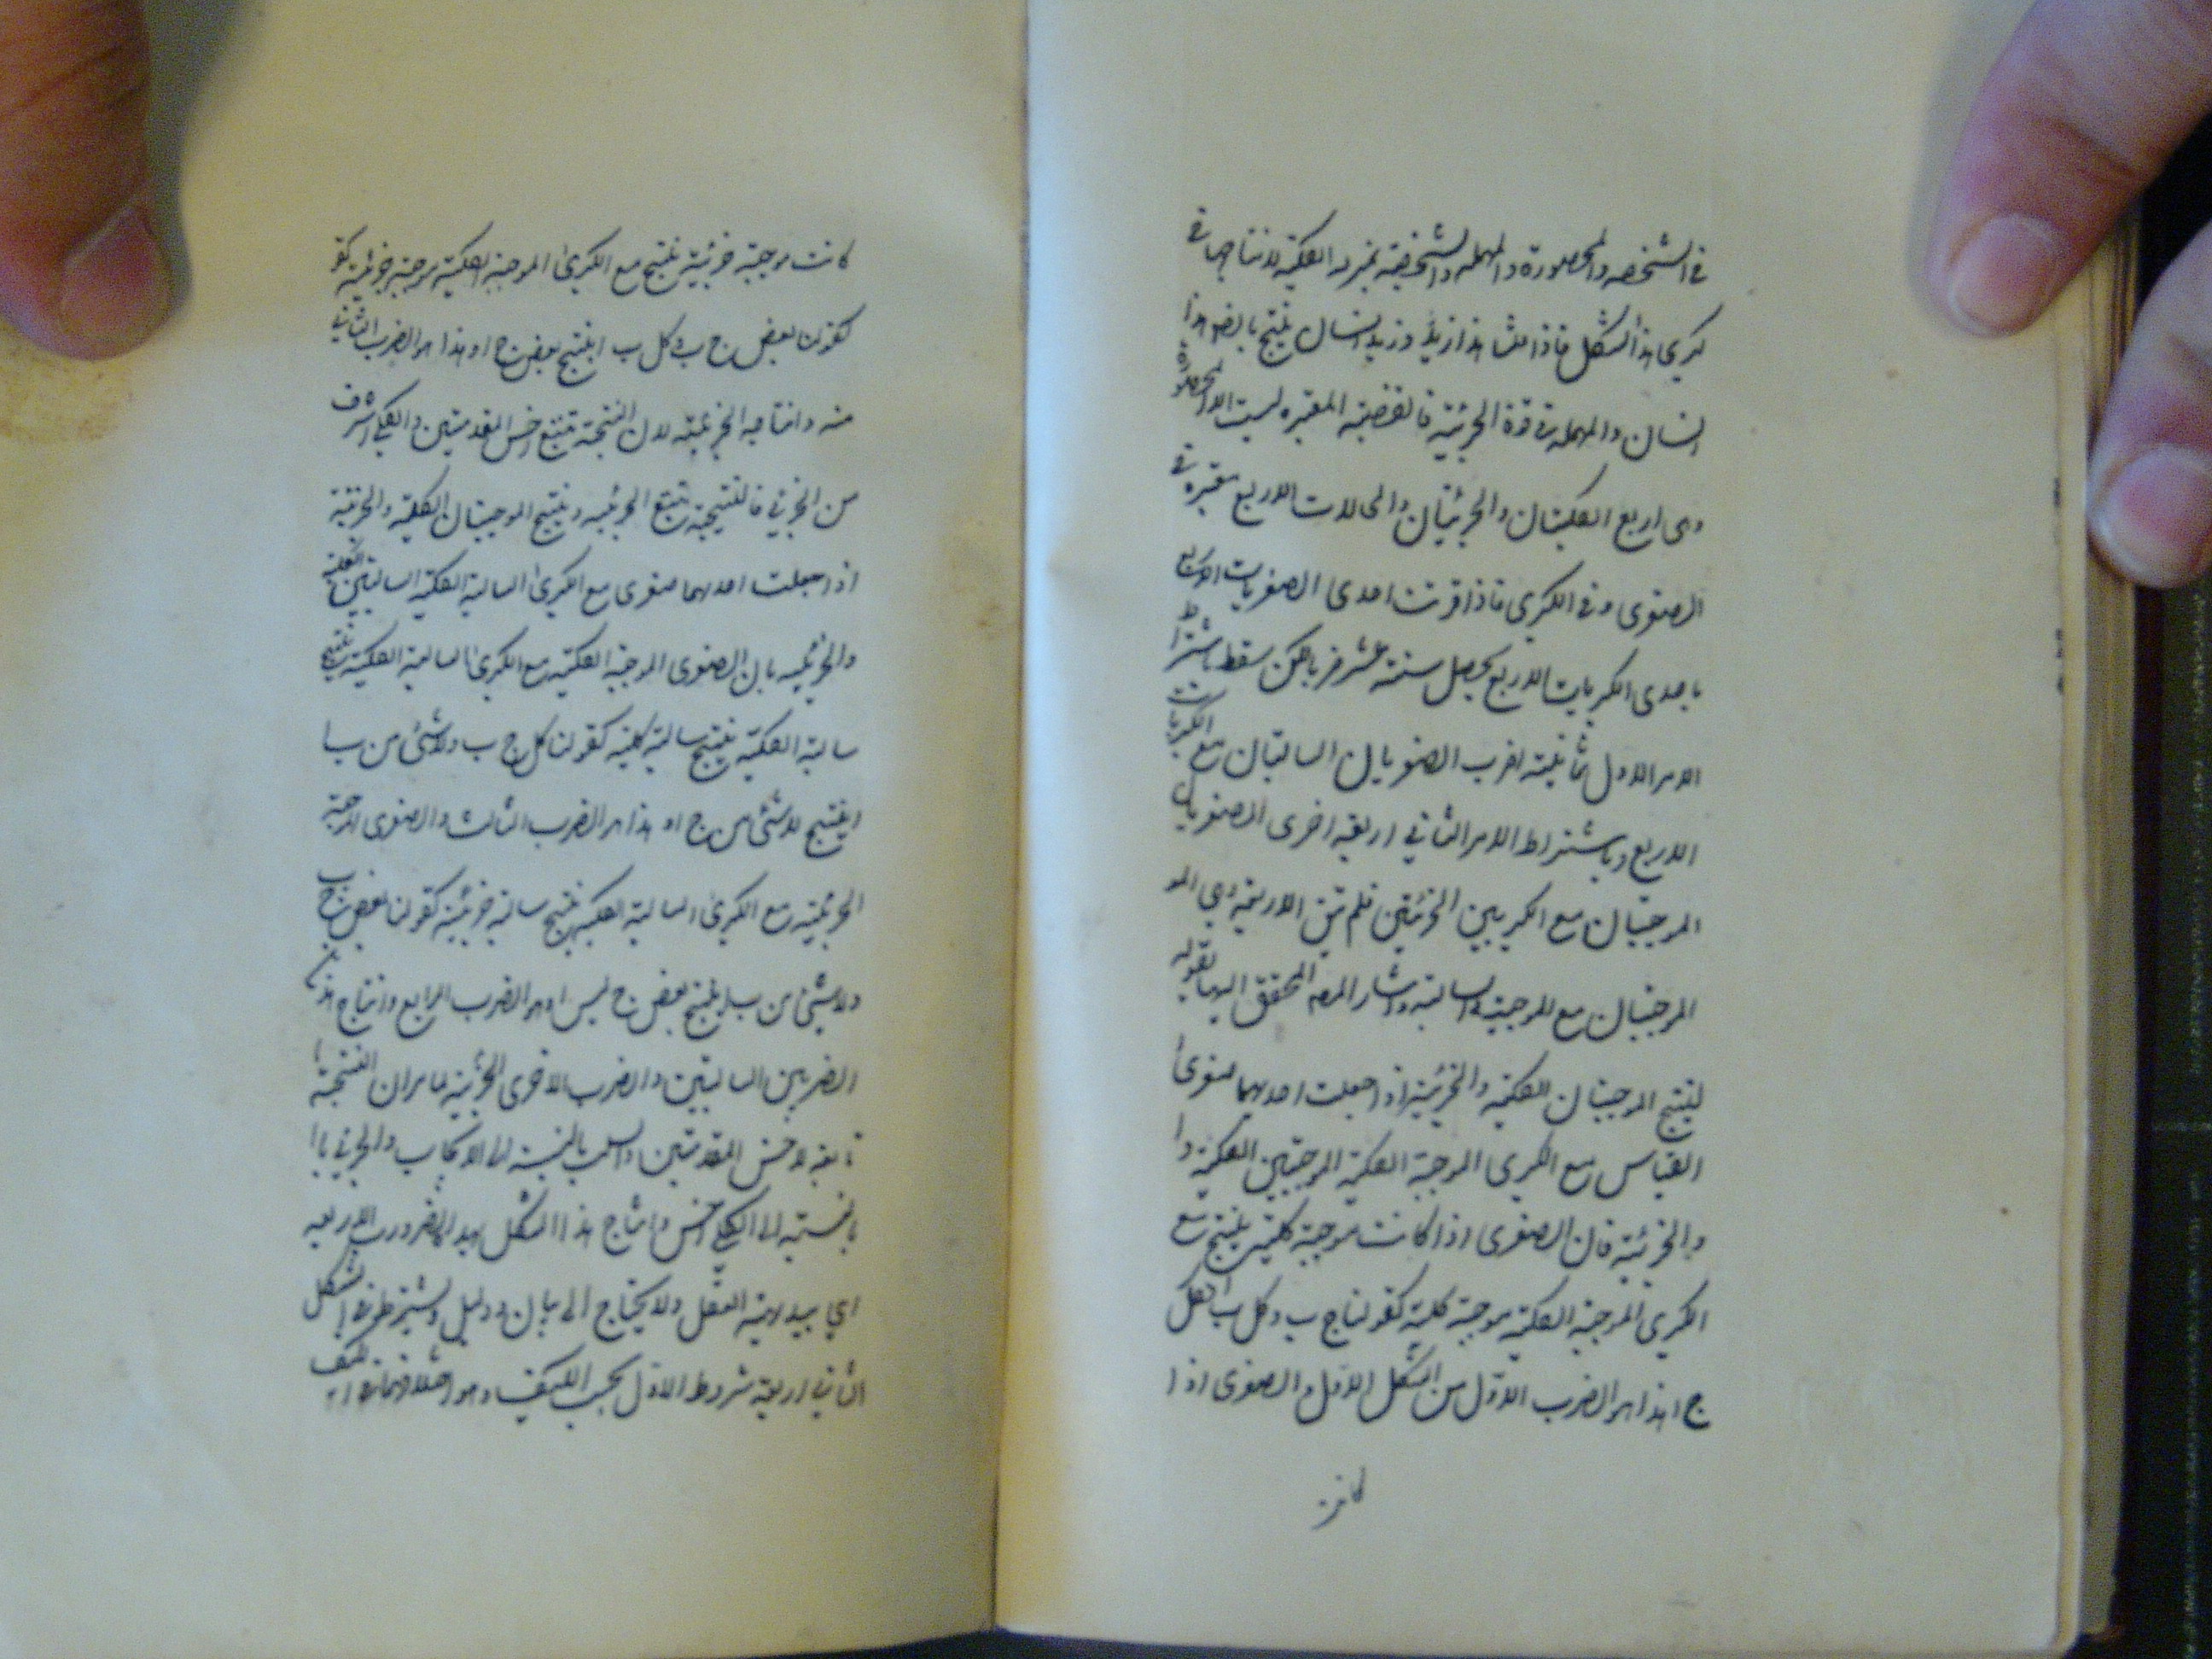 في الشخصه والمحصورة والمهمله والشخصية بمنزلة الكلية لانتاجها في
كبرى هذا الشكل فاذا قلنا هذا زيد وزيد انسان ينتج بالضرورة هذا
انسان والمهمله في قوة الجزئية فالقضية المعتبره ليست الا المحصورة
وهي اربع الكليتان والجزئيتان والحالات الاربع معتبره في
الصغرى وفي الكبرى فاذا قرنت احدى الصغريات الاربع
باحدى الكبريات الاربع يحصل ستة عشر ضربا لكن سقط باشتراط
الامر الاول ثمانية اضرب الصغريان السالبتان مع الكبريات
الاربع وباشتراط الامر الثاني اربعه اخرى الصغريان
الموجبتان مع الكبريين الجزئيتين فلم تبق الا اربعة وهي المو
الموجبتان مع الموجبة والسالبة واشار المصه المحقق اليها بقوله
لينتج الموجبتان الكلية والجزئية اذا جعلت احديهما صغرى
القياس مع الكبرى الموجبة الكلية الموجبتين الكلية وا
والجزئية فان الصغرى اذا كانت موجبة كلية ينتج مع
الكبرى الموجبة الكلية موجبة كلية كقولنا ج ب وكل ب ا فكل
ج ا هذا هو الضرب الاول من الشكل الاول والصغرى اذا
كانت موجبة جزئية ينتج مع الكبرى الموجبة الكلية موجبة جزئية كقو
كقولنا بعض ج ب وكل ب ا ينتج بعض ج ا وهذا هو الضرب الثاني
منه وانتاجه الجزئية لان النتيجة تتبع اخس المقدمتين والكلي اشرف
من الجزئي فالنتيجة تتبع الجزئيه وينتج الموجبتان الكلية والجزئية
اذا جعلت احديهما صغرى مع الكبرى السالبة الكلية السالبتين الكلية
والجزئيه بان الصغرى الموجبة الكلية مع الكبرى السالبة الكلية ينتج
سالبة الكلية ينتج سالبة كلية كقولنا كل ج ب ولا شئ من ب ا
ا ينتج لا شئ من ج ا و هذا هو الضرب الثالث والصغرى الموجبة
الجزئية مع الكبرى السالبة الكلية ينتج سالبة جزئية كقولنا بعض ج ب
ولا شئ من ب ا ينتج بعض ج ليس ا وهو الضرب الرابع وانتاج هذا
الضربين السالبتين والضرب الاخرى الجزئية لما مر ان النتيجة
تابعة لاخس المقدمتين والسلب بالنسبة الى الايجاب والجزئي با
بالنسبة الى الكلي اخس وانتاج هذا الشكل لهذه الضروب الاربعه
اي ببديهية العقل ولا يحتاج الى بيان ودليل ويشترط في الشكل
الثاني اربعة شروط الاول بحسب الكيف وهو اختلافهما في الكيف